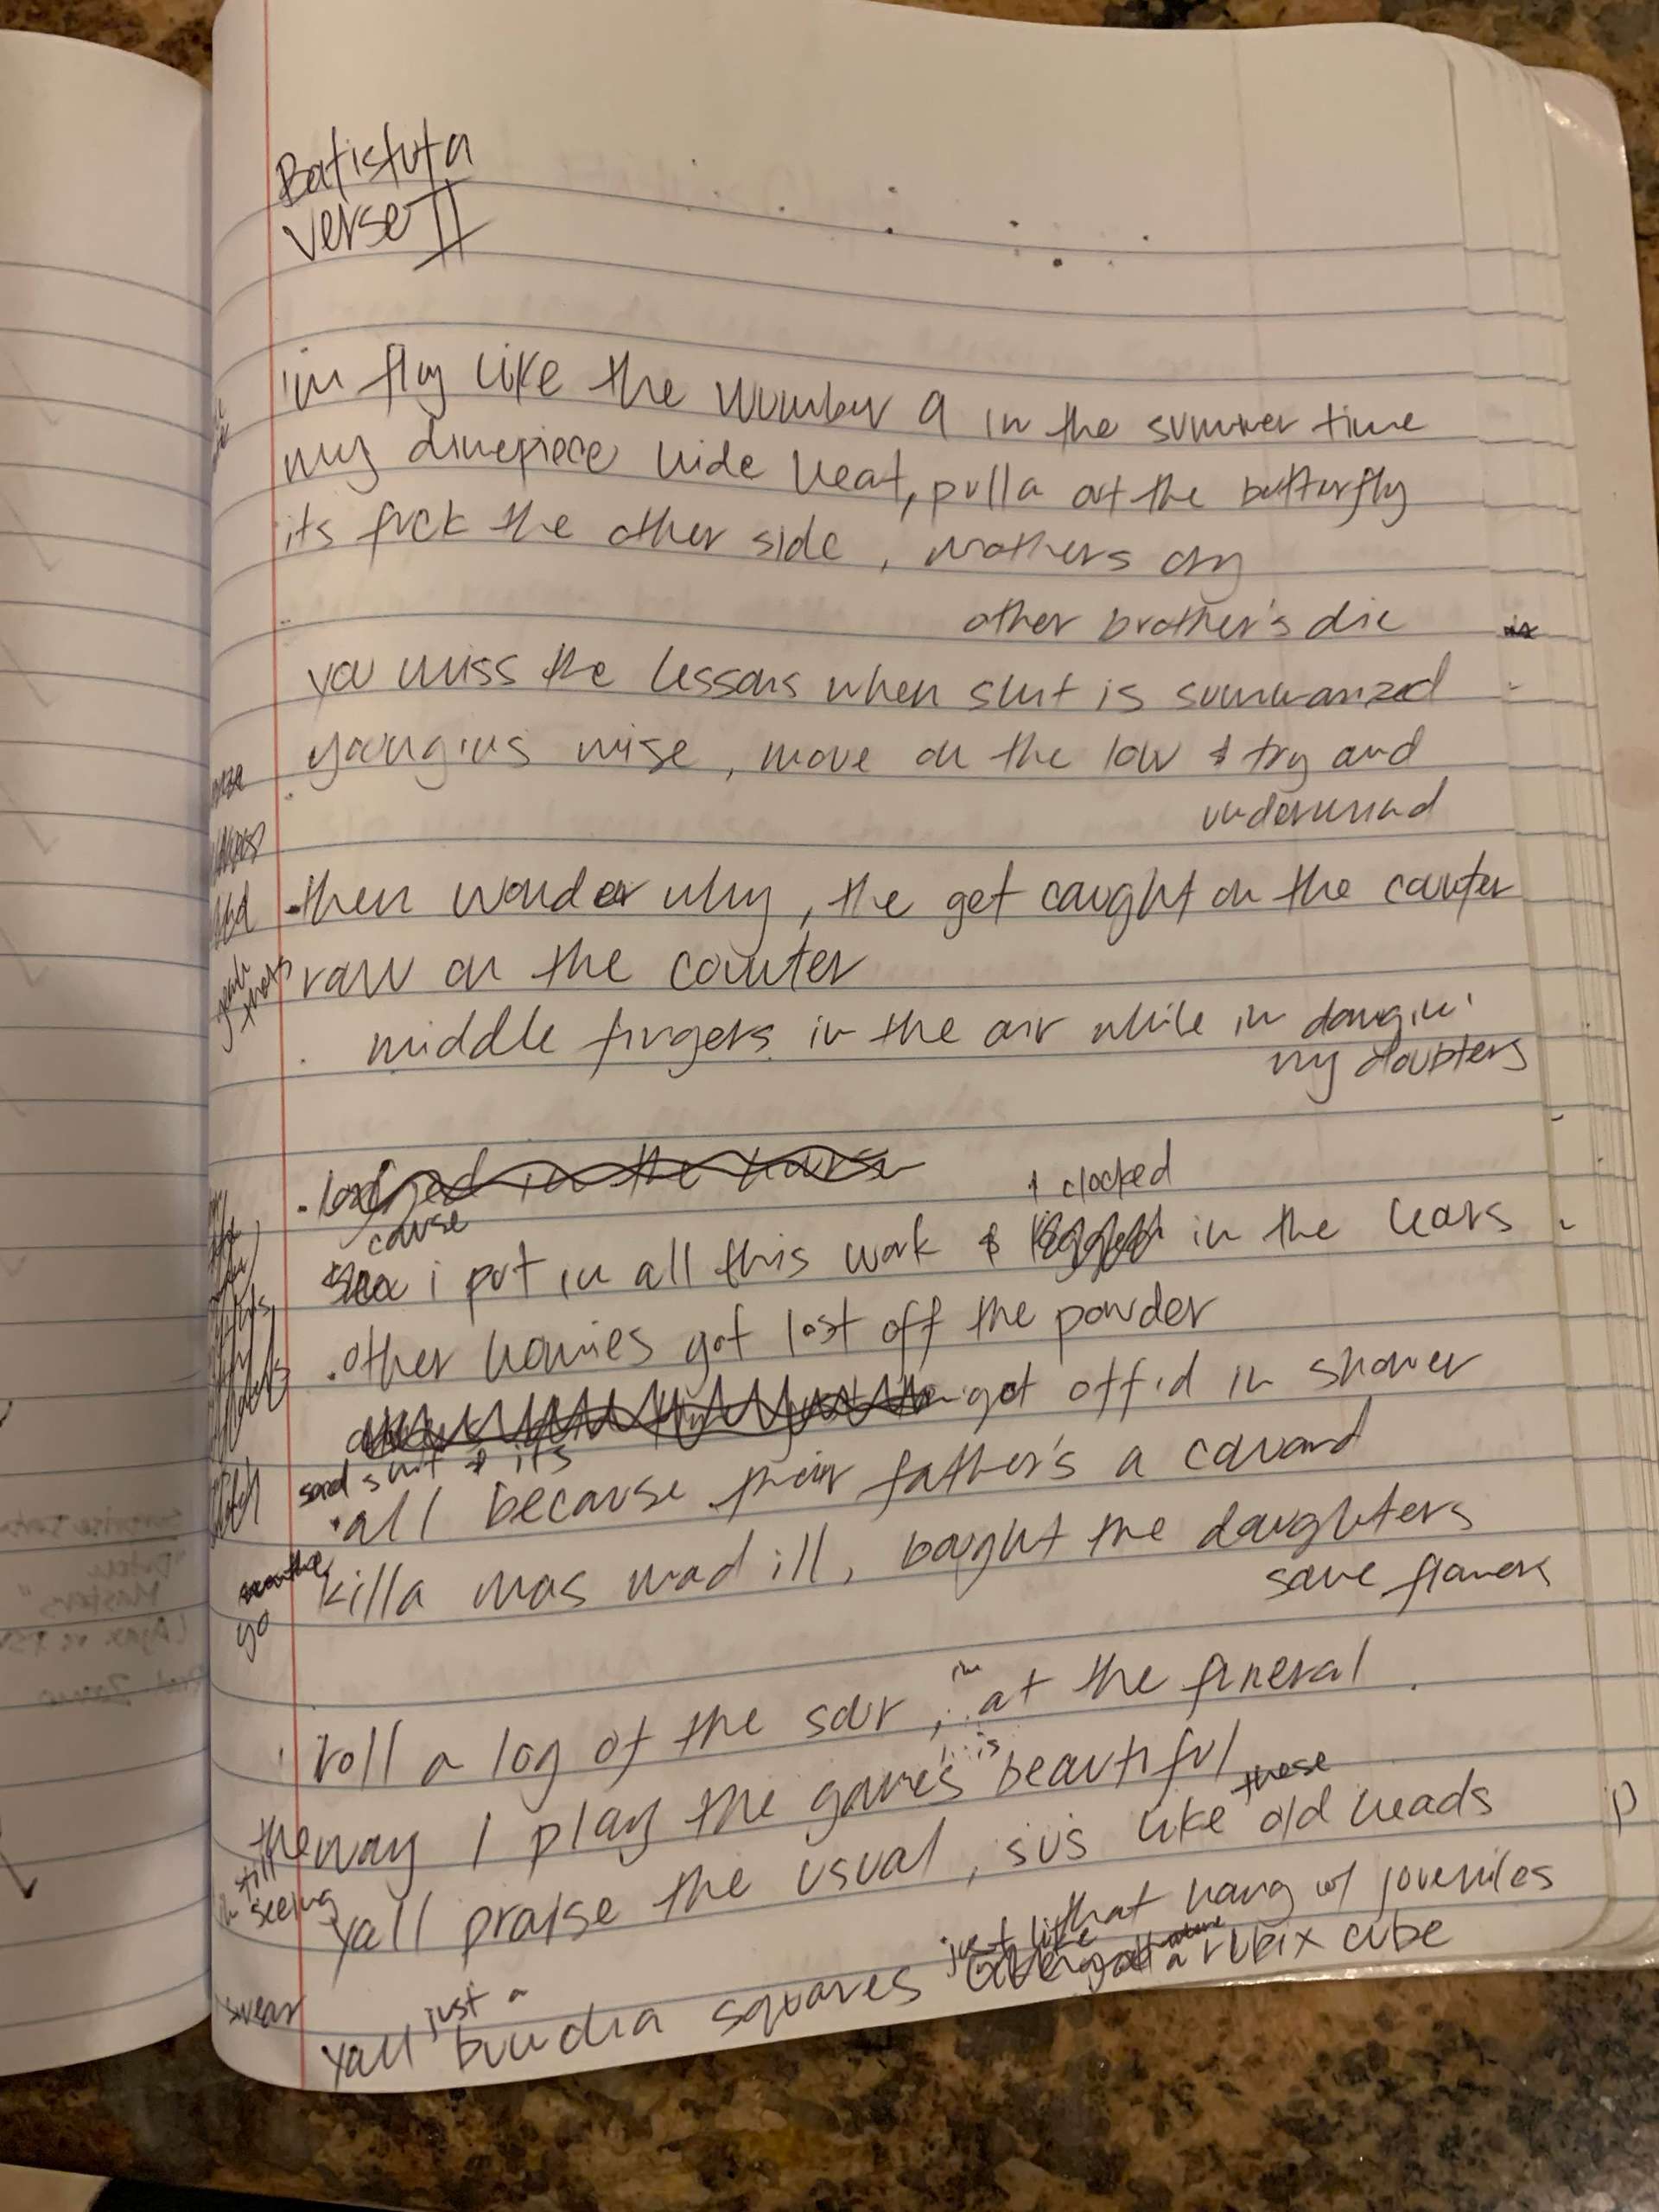 Batistuta
Verse II
i'm fly like the number 9 in the summer time
my dimepiece hide heat, pulla out the butterfly
its fuck the other side, mothers cry
other brother's die
you miss the lessons when shit is summarized
youngins wise, move on the low & try and
undermind
then wonder why, the get caught on the counter
raw on the counter
middle fingers in the air while in
my doubters
& clocked
cause
i put in all this work & in the hours
other homies got lost off the powder
got off'd in shower
said shit & its
all because their father's a coward
killa was mad ill, bought the daughters
some flowers
yo
im
roll a log of the sour, at the funeral
is
the way I play the game's beautiful
these
still
seeing
yall praise the usual, sus like old heads
that hang w/ juveniles
just like
a rubix cube
swear
just a
yall buncha squares